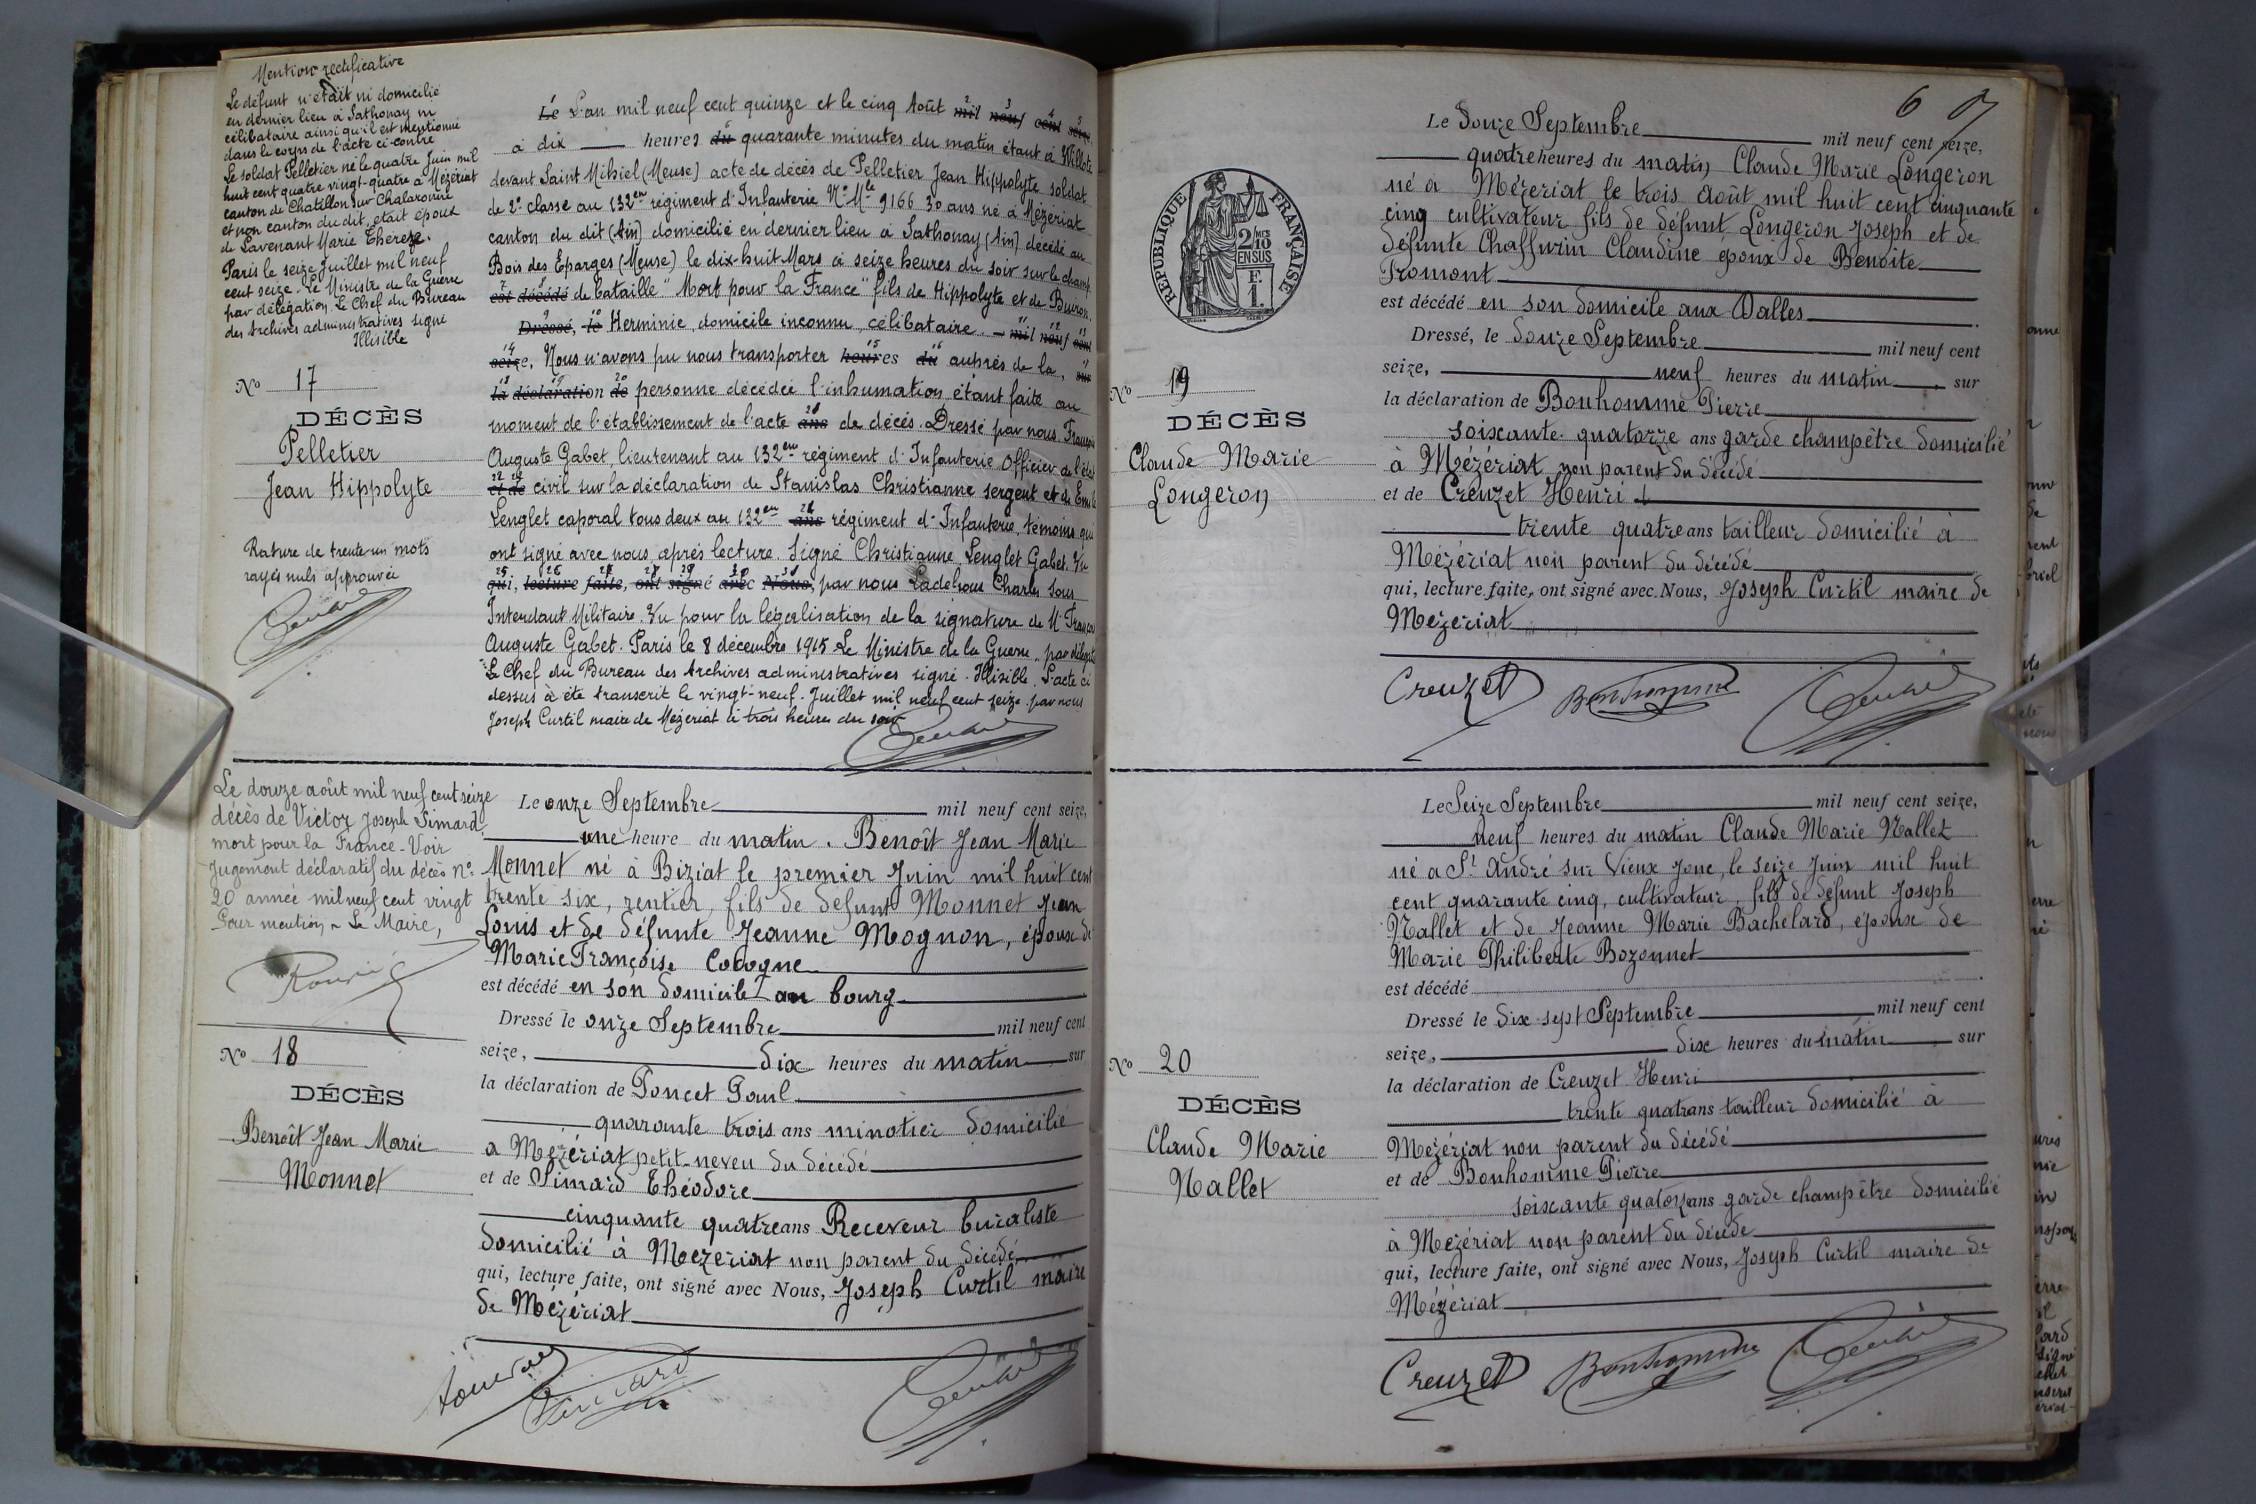 Mention rectificative
Le défunt n'était ni domicilié
en dernier lieu à Sathonay ni
célibataire ainsi qu'il est mentionné
dans le corps de l'acte ci-contre
Le soldat Pelletier né le quatre Juin mil
huit cent quatre vingt-quatre à Mézériat
canton de Chatillon sur Chalaronne
et non canton du dit, était époux
de Lavenant Marie Thérèze.
Paris le seize Juillet mil neuf
cent seize. Le Ministre de la Guerre
par délégation. Le Chef du Bureau
des Archives administratives signé
Illisible
N° 17
DÉCÈS
Pelletier
Jean Hippolyte
Rature de trente un mots
rayés nuls approuvée
Le L'an mil neuf cent quinze et le cinq Août mil neuf cent seize
à dix heures du quarante minutes du matin étant à Villotte
devant Saint Mihiel (Meuse) acte de décès de Pelletier Jean Hippolyte soldat
de 2e classe au 132em régiment d'Infanterie N° Mle 9166 30 ans né à Mézériat
canton du dit (Ain) domicilié en dernier lieu à Sathonay (Ain) décédé au
Bois des Eparges (Meuse) le dix-huit Mars à seize heures du soir sur le champ
est décédé de bataille "Mort pour la France" fils de Hippolyte et de Buiron
Dressé, le Herminie, domicile inconnu, célibataire. - mil neuf cent
seize, Nous n'avons pu nous transporter heures du auprès de la, sur
la déclaration de personne décédée l'inhumation étant faite au
moment de l'établissement de l'acte ans de décès. Dressé par nous François
Auguste Gabet, lieutenant au 132em régiment d'Infanterie Officier de l'état
et de civil sur la déclaration de Stanislas Christianne sergent et de Emile
Lenglet caporal tous deux au 132em ans régiment d'Infanterie, témoins qui
ont signé avec nous après lecture. Signé Christianne Lenglet Gabet. Vu
qui, lecture faite, ont signé avec Nous, par nous Ladehous Charles Sous
Intendant Militaire. Vu pour la légalisation de la signature de Mr François
Auguste Gabet. Paris le 8 décembre 1915 Le Ministre de la Guerre, par délégat
Le Chef du Bureau des Archives administratives signé. Illisible. L'acte ci
dessus à été transcrit le vingt-neuf Juillet mil neuf cent seize par nous
Joseph Curtil maire de Mézériat à trois heures du soir
Le douze août mil neuf cent seize
décès de Victor Joseph Simard
mort pour la France - Voir
Jugement déclaratif du décès n°
20 année mil neuf cent vingt
Pour mention - Le Maire,
N° 18
DÉCÈS
Benoît Jean Marie
Monnet
Le onze Septembre mil neuf cent seize,
une heure du matin. Benoît Jean Marie
Monnet né à Biziat le premier Juin mil huit cent
trente six, rentier, fils de défunt Monnet Jean
Louis et de défunte Jeanne Mognon, époux de
Marie Françoise Cologne
est décédé en son domicile au bourg
Dressé le onze Septembre mil neuf cent
seize, dix heures du matin sur
la déclaration de Poncet Paul
quarante trois ans minotier domicilié
à Mézériat petit-neveu du décédé
et de Simard Théodore
cinquante quatre ans Receveur buraliste
domicilié à Mézériat non parent du décédé
qui, lecture faite, ont signé avec Nous, Joseph Curtil maire
de Mézériat
6
RÉPUBLIQUE FRANÇAISE
2/10 MES
EN SUS
F.
1.
N° 19
DÉCÈS
Claude Marie
Longeron
Le douze Septembre mil neuf cent seize,
quatre heures du matin Claude Marie Longeron
né à Mézeriat le trois août mil huit cent cinquante
cinq cultivateur fils de défunt Longeron Joseph et de
défunte Chaffurin Claudine époux de Benoite
Fromont
est décédé en son domicile aux Dalles
Dressé, le douze Septembre mil neuf cent
seize, neuf heures du matin, sur
la déclaration de Bonhomme Pierre
soixante quatorze ans garde champêtre domicilié
à Mézériat non parent du décédé
et de Creuzet Henri
trente quatre ans tailleur domicilié à
Mézériat non parent du décédé
qui, lecture faite, ont signé avec Nous, Joseph Curtil maire de
Mézeriat
Creuzet Bonhomme
N° 20
DÉCÈS
Claude Marie
Nallet
Le Seize Septembre mil neuf cent seize,
neuf heures du matin Claude Marie Nallet
né à St André sur Vieux Jonc, le seize Juin mil huit
cent quarante cinq, cultivateur, fils de défunt Joseph
Nallet et de Jeanne Marie Bachelard, époux de
Marie Philiberte Bozonnet
est décédé
Dressé le Dix-sept Septembre mil neuf cent
seize, dix heures du matin sur
la déclaration de Creuzet Henri
trente quatre ans tailleur domicilié à
Mézériat non parent du décédé
et de Bonhomme Pierre
soixante quatorze ans garde champêtre domicilié
à Mézériat non parent du décédé
qui, lecture faite, ont signé avec Nous, Joseph Curtil maire de
Mézériat
Creuzet Bonhomme